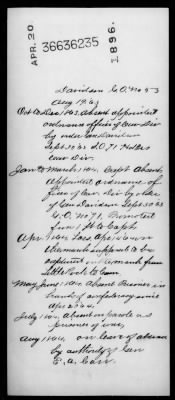 APR. 20
36636235
1896.
Davidson G.O. No 53
Aug 19. 63
Oct to Dec 1863. absent appointed
ordnance officer of Cav Div
by order Gen Davidson
Sept 30 63 S.O. 71 Hdqrs
Cav Div.
Jan to March 1864. Capt Absent
appointed ord
officer of Cav. Div by order
of Gen Davidson Sept 30 63
S.O. No 71. Promoted
from 1 Lt to Capt.
Apr 1864. Loss Apr 20 64 on
supposed to be
captured in the march from
Little Rock to Camden.
May June 1864. Absent Prisoner in
hands of confederacy since
Apr 20 64.
July 1864. absent on parole as
prisoner of war.
Aug 1864. on leave of absence
by authority of Gen
E. A. Carr.